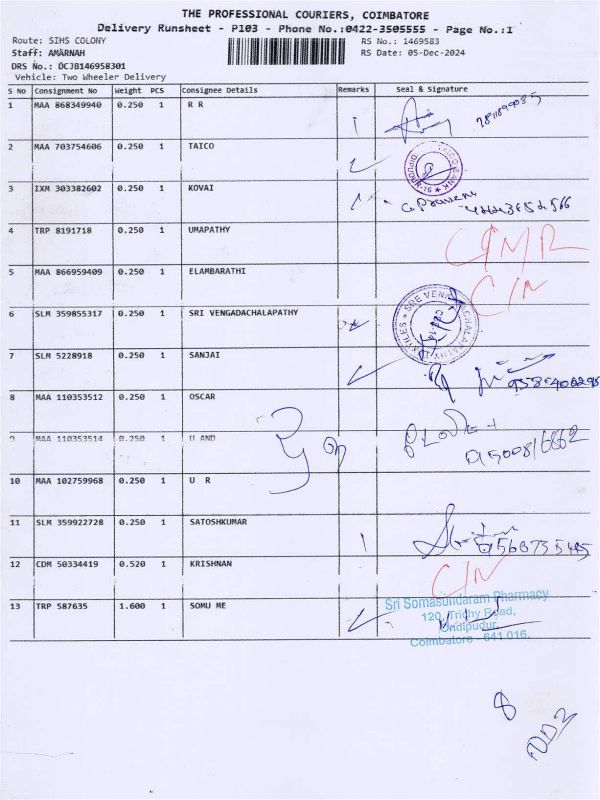 THE PROFESSIONAL COURIERS, COIMBATORE
Delivery Runsheet - P103 - Phone No.:0422-3505555 - Page No.:1
Route: SIHS COLONY RS No.: 1469583
Staff: AMARNAH RS Date: 05-Dec-2024
DRS No.: DCJB146958301
Vehicle: Two Wheeler Delivery
S No Consignment No Weight PCS Consignee Details Remarks Seal & Signature
1 MAA 868349940 0.250 1 R R
2 MAA 703754606 0.250 1 TAICO
3 IXM 303382602 0.250 1 KOVAI
4 TRP 8191718 0.250 1 UMAPATHY
5 MAA 866959409 0.250 1 ELAMBARATHI
C/N
6 SLM 359855317 0.250 1 SRI VENGADACHALAPATHY
7 SLM 5228918 0.250 1 SANJAI
8 MAA 110353512 0.250 1 OSCAR
9 MAA 110353514 0.250 1 U AND
10 MAA 102759968 0.250 1 U R
11 SLM 359922728 0.250 1 SATOSHKUMAR
12 CDM 50334419 0.520 1 KRISHNAN C/N
13 TRP 587635 1.600 1 SOMU ME
Sri Somasundaram Pharmacy
120, Trichy Road,
Ondipudur,
Coimbatore - 641 016.
8